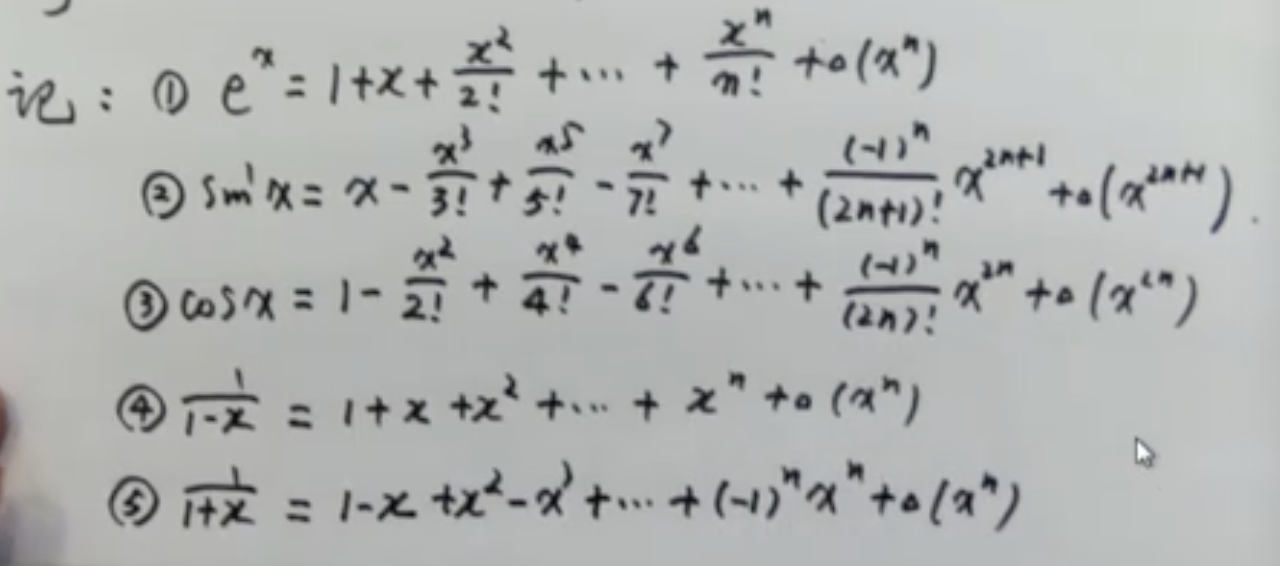 记: ① e^x = 1+x+\frac{x^2}{2!} + ⋯ + \frac{x^n}{n!} + o(x^n)
② sin x = x - \frac{x^3}{3!} + \frac{x^5}{5!} - \frac{x^7}{7!} + ⋯ + \frac{(-1)^n}{(2n+1)!} x^{2n+1} + o(x^{2n+1}).
③ cos x = 1 - \frac{x^2}{2!} + \frac{x^4}{4!} - \frac{x^6}{6!} + ⋯ + \frac{(-1)^n}{(2n)!} x^{2n} + o(x^{2n})
④ \frac{1}{1-x} = 1+x+x^2+⋯+x^n+o(x^n)
⑤ \frac{1}{1+x} = 1-x+x^2-x^3+⋯+(-1)^n x^n+o(x^n)